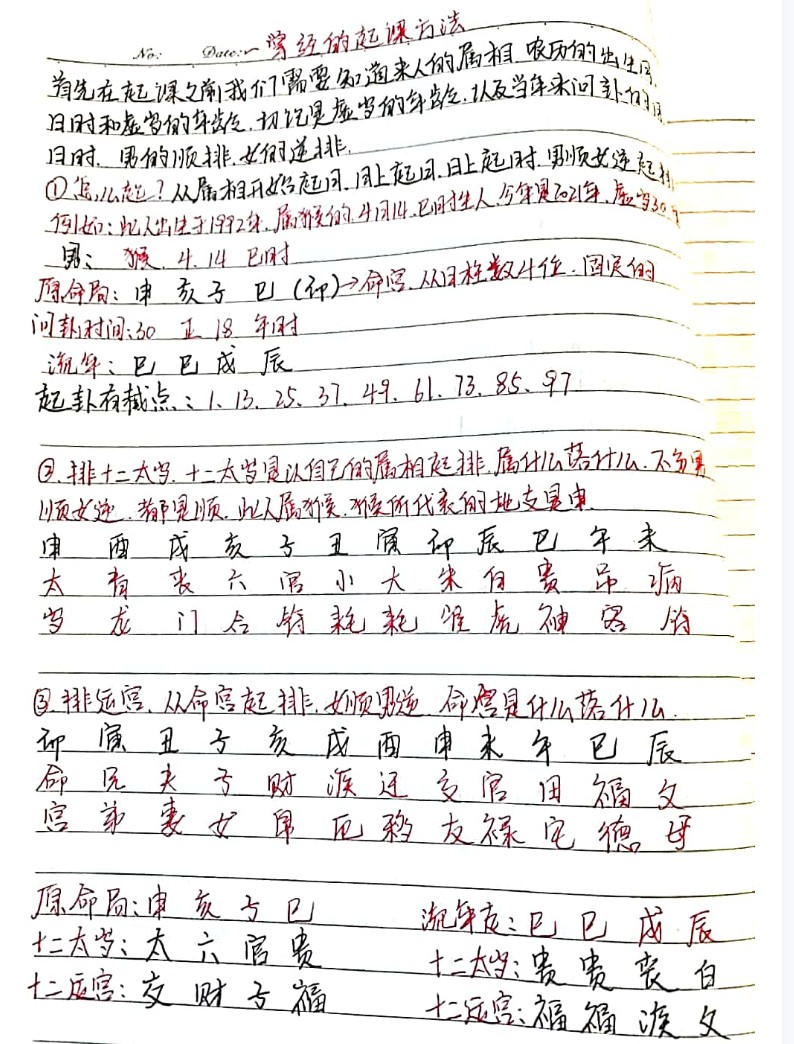 No: Date: 掌经的起课方法
首先在起课之前我们需要知道来人的属相.农历的出生月
日时和虚岁的年龄.切记是虚岁的年龄.以及当年来问卦的月
日时.男的顺排.女的逆排.
①怎么起?从属相开始起月.月上起日.日上起时.男顺女逆起排
例如:此人出生于1992年.属猴的.4月14.巳时生人.今年是2021年.虚岁30
男: 猴.4.14 巳时
原命局:申 亥 子 巳 (卯)→命宫.从时柱数4位.固定的
问卦时间:30 正 18 午时
流年:巳 巳 戌 辰
起卦有截点:1.13.25.37.49.61.73.85.97
②排十二太岁.十二太岁是以自己的属相起排.属什么落什么.不分男
顺女逆.都是顺.此人属猴.猴所代表的地支是申.
申 酉 戌 亥 子 丑 寅 卯 辰 巳 午 未
太 青 丧 六 官 小 大 朱 白 贵 吊 病
岁 龙 门 合 符 耗 耗 雀 虎 神 客 符
③排运宫.从命宫起排.女顺男逆 命宫是什么落什么.
卯 寅 丑 子 亥 戌 酉 申 未 午 巳 辰
命 兄 夫 子 财 疾 迁 交 官 田 福 父
宫 弟 妻 女 帛 厄 移 友 禄 宅 德 母
原命局:申 亥 子 巳 流年度:巳 巳 戌 辰
十二太岁:太 六 官 贵 十二太岁:贵 贵 丧 白
十二运宫:交 财 子 福 十二运宫:福 福 疾 父